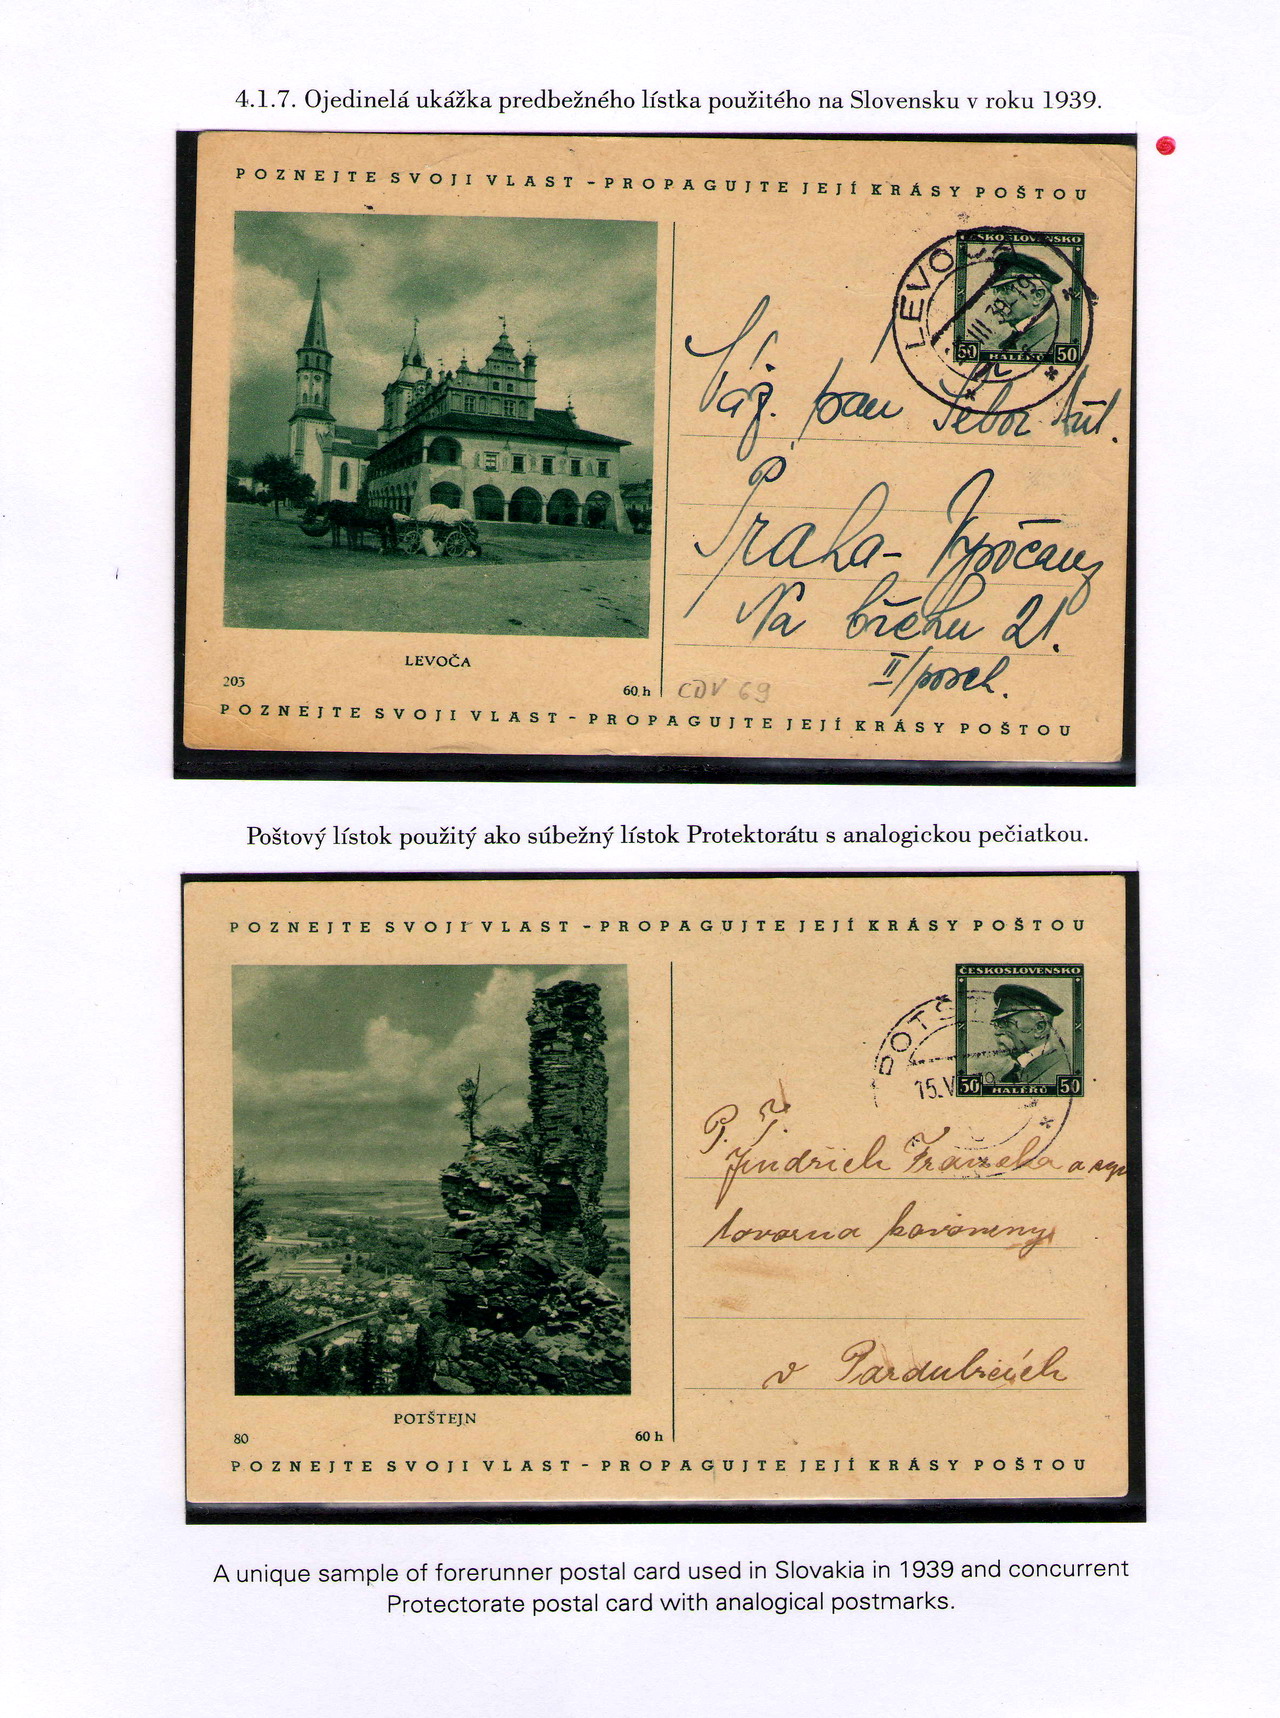 4.1.7. Ojedinelá ukážka predbežného lístka použitého na Slovensku v roku 1939.
POZNEJTE SVOJI VLAST - PROPAGUJTE JEJÍ KRÁSY POŠTOU
ČESKOSLOVENSKO
LEVOČA
III 39-19
50 HALÉŘŮ 50
Váž. pan
Praha - Vysočany
Na břehu 21.
II/posch.
LEVOČA
203
60 h
CDV 69
POZNEJTE SVOJI VLAST - PROPAGUJTE JEJÍ KRÁSY POŠTOU
Poštový lístok použitý ako súbežný lístok Protektorátu s analogickou pečiatkou.
POZNEJTE SVOJI VLAST - PROPAGUJTE JEJÍ KRÁSY POŠTOU
ČESKOSLOVENSKO
POTŠ
15.V
50 HALÉŘŮ 50
P. T.
Jindřich Franěk a syn
továrna
v Pardubicích
POTŠTEJN
80
60 h
POZNEJTE SVOJI VLAST - PROPAGUJTE JEJÍ KRÁSY POŠTOU
A unique sample of forerunner postal card used in Slovakia in 1939 and concurrent
Protectorate postal card with analogical postmarks.